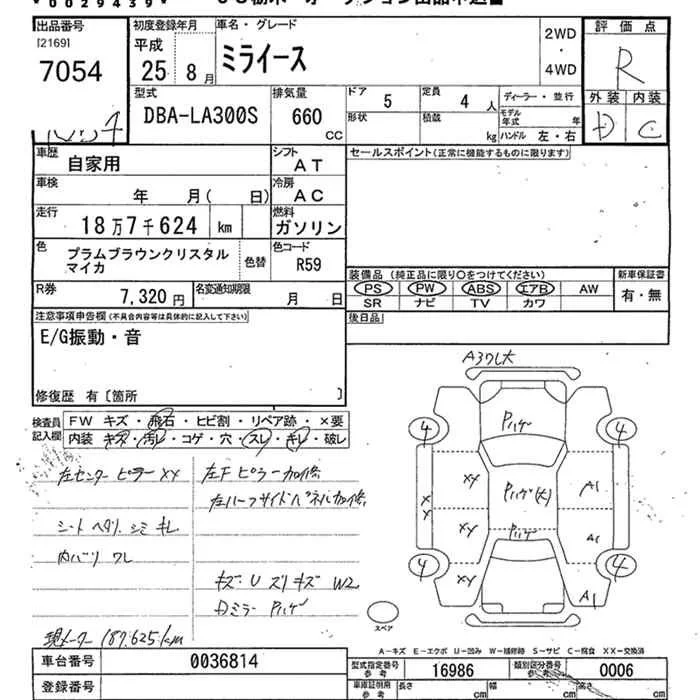 0029439
出品番号
[2169]
7054
初度登録年月
平成
25 8月
車名・グレード
ミライース
2WD
・
4WD
評価点
R
型式
DBA-LA300S
排気量
660
CC
ドア
5
定員
4 人
ディーラー・並行
外装 内装
D C
形状
積載
kg
モデル年式
年
ハンドル 左・右
車歴
自家用
シフト
AT
セールスポイント(正常に機能するものに限ります)
車検
年 月( 日)
冷房
AC
走行
18万7千624 km
燃料
ガソリン
色
プラムブラウンクリスタル
マイカ
色替
色コード
R59
装備品 (純正品に限り○をつけてください)
新車保証書
PS PW ABS エアB AW
SR ナビ TV カワ
有・無
R券
7,320円
名変通知期限
月 日
後日品
注意事項申告欄(不具合内容等は具体的に記入して下さい)
E/G振動・音
修復歴 有〔箇所 〕
検査員
記入欄
FW キズ・飛石・ヒビ割・リペア跡・×要
内装 キズ・汚レ・コゲ・穴・スレ・キレ・破レ
左センターピラーXX
左Fピラー加修
左ハーフサイドパネル加修
シートヘタリ シミ キレ
内バリ ワレ
キズ・U スリキズ W2
Dミラー Pハゲ
現メーター 187,625km
車台番号
0036814
登録番号
Pハゲ
4
4
XX
XY
Pハゲ(大)
A1
XY
Pハゲ
A1
XY
4
4
A1
スペア
A-キズ E-エクボ U-凹み W-補修跡 S-サビ C-腐食 XX-交換済
型式指定番号
参考
16986
類別区分番号
参考
0006
車庫証明用
参考
長さ
cm
幅
cm
高さ
cm